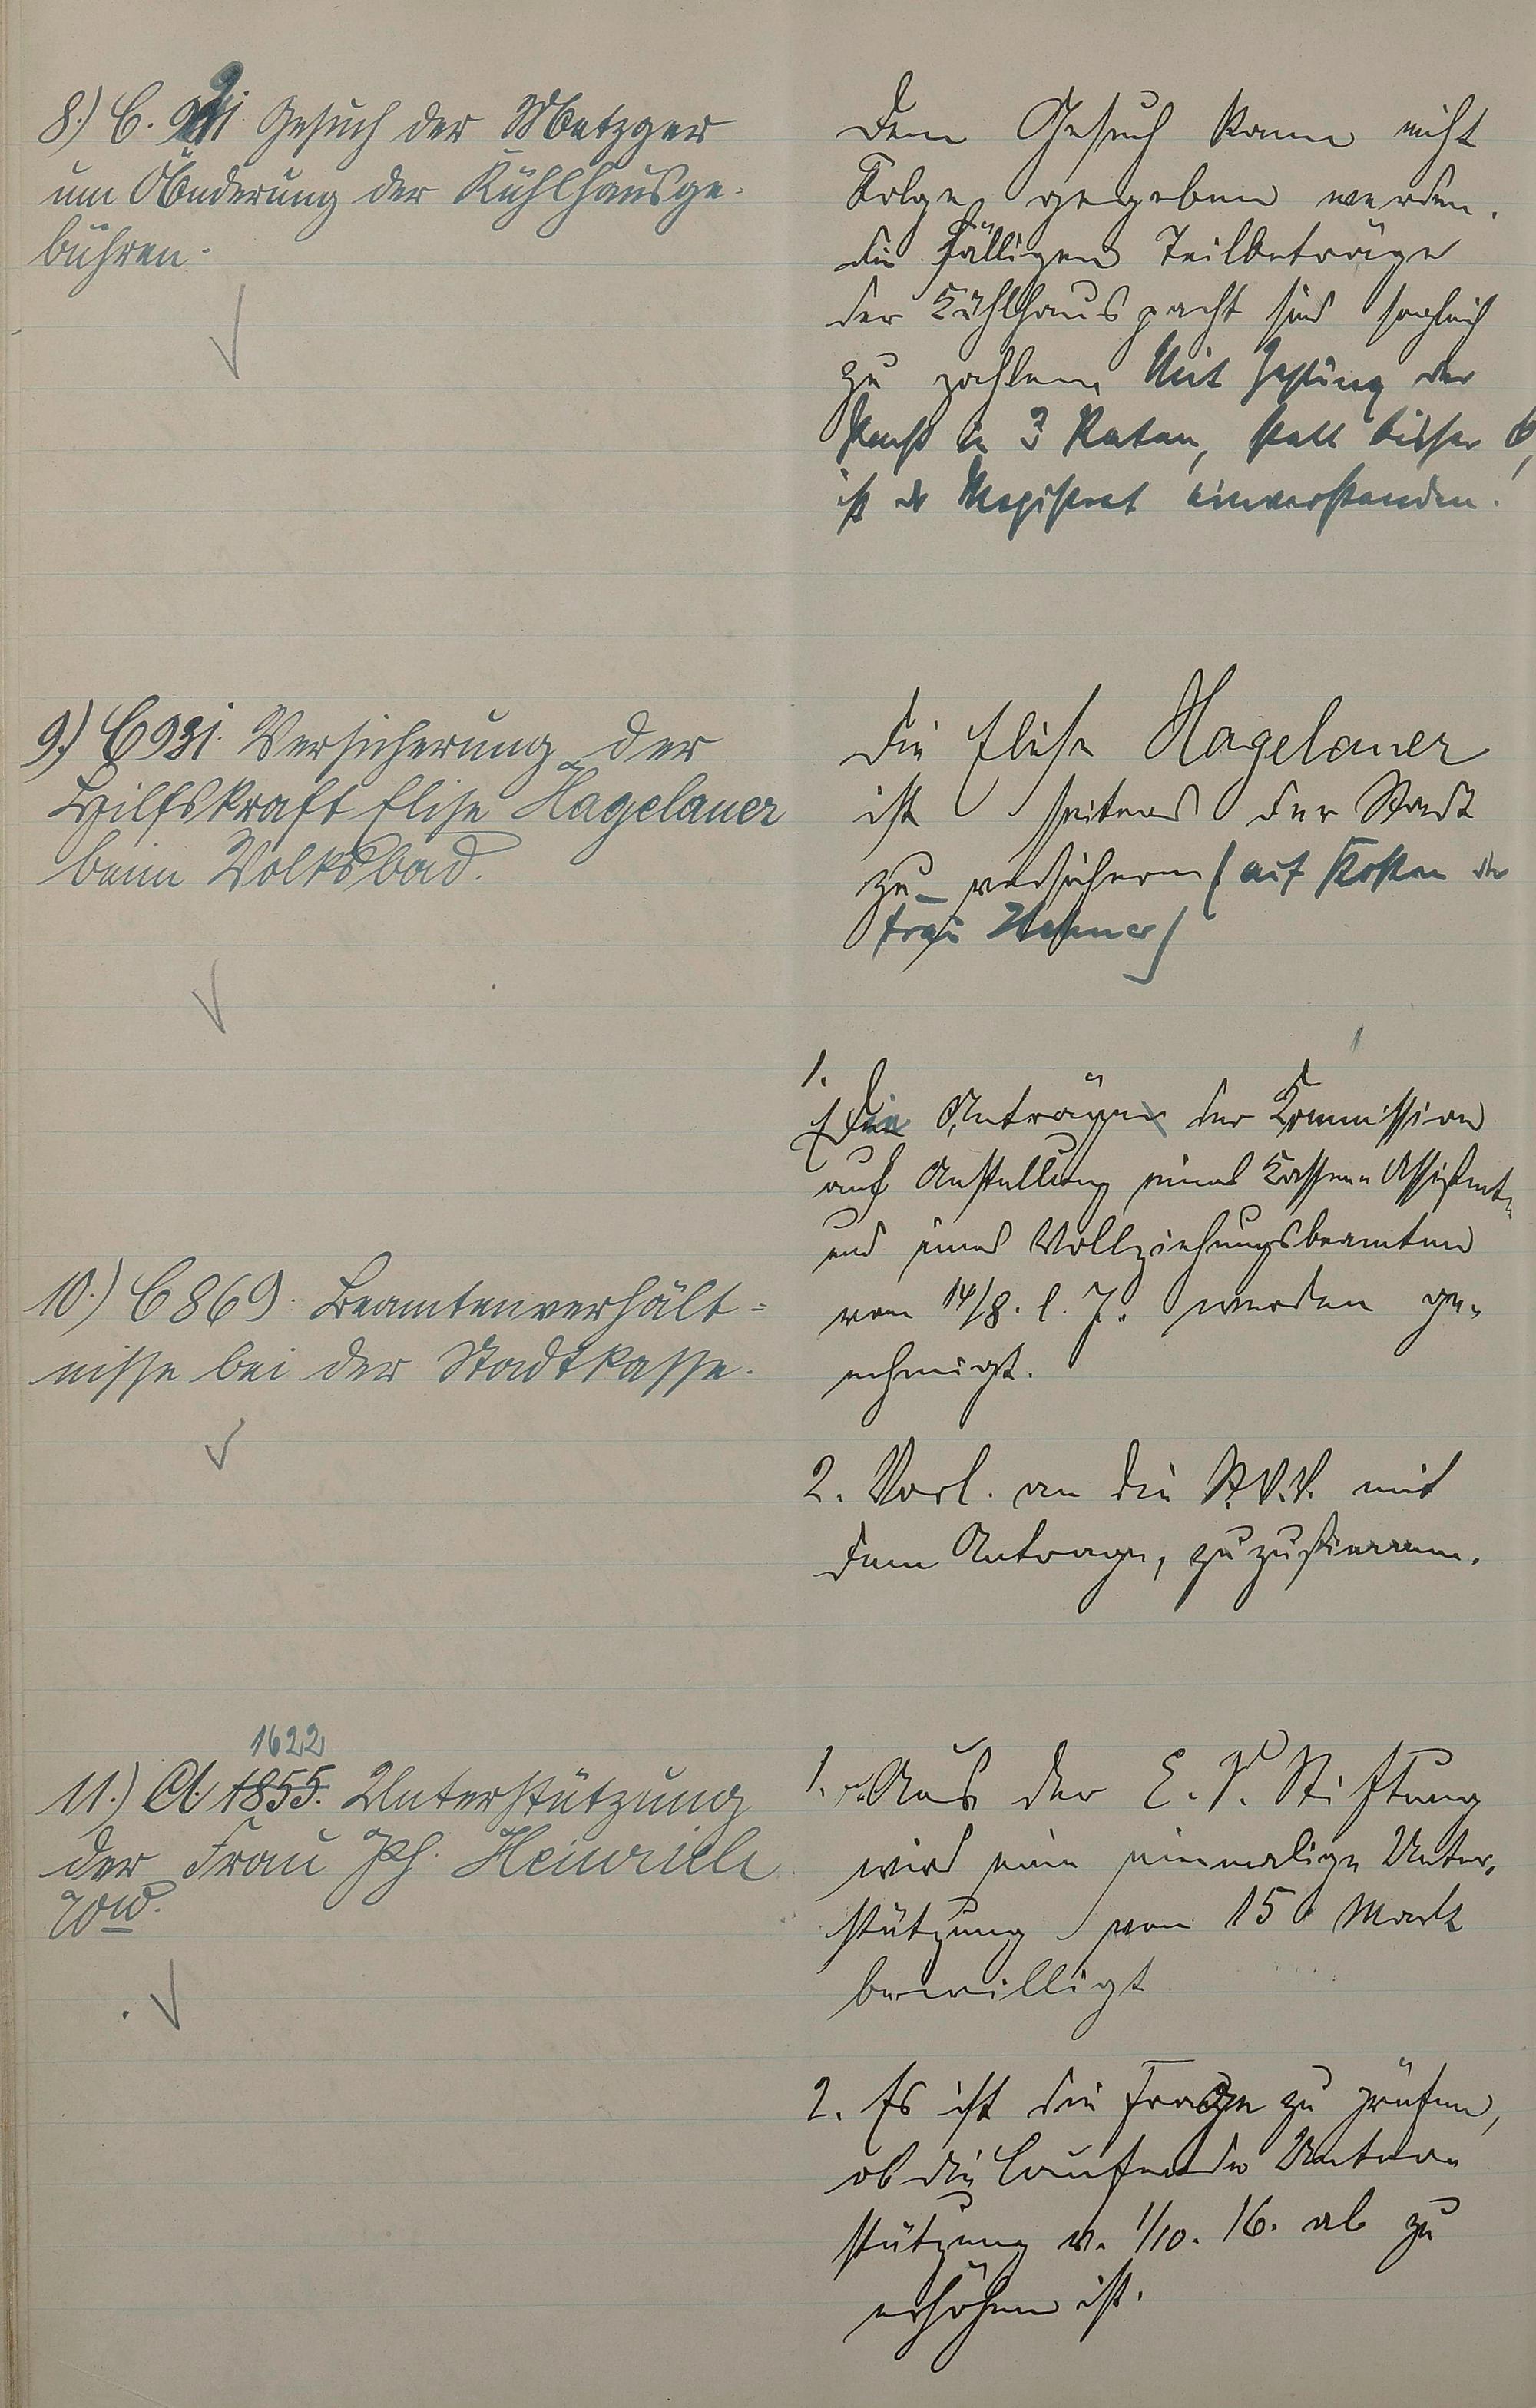 8.) C. 921 Gesuch der Metzger
um Änderung der Kühlhausge-
bühren.
Dem Gesuch kann nicht
Folge gegeben werden.
Die fälligen Teilbeträge
der Kühlhauspacht sind sogleich
zu zahlen. Mit Zahlung der
Pacht in 3 Raten, statt bisher 6,
ist der Magistrat einverstanden.
9.) C 931. Versicherung der
Hilfskraft Elise Hagelauer
beim Volksbad.
Die Elise Hagelauer
ist seitens der Stadt
zu versichern (auf Kosten der
Frau
10.) C 869. Beamtenverhält-
nisse bei der Stadtkasse.
1.
Die Anträge der Kommission
auf Anstellung eines Kassen-Assistent.
und eines Vollziehungsbeamten
vom 14/8. l. J. werden ge-
nehmigt.
2. Vorl. an die St.V.V. mit
dem Antrage, zuzustimmen.
11.) A. 1855. 1622 Unterstützung
der Frau Ph. Heinrich
Wwe.
1. Aus der E. V. Stiftung
wird eine einmalige Unter-
stützung von 15 Mark
bewilligt
2. Es ist die Frage zu prüfen,
ob die laufende Unter-
stützung v. 1/10. 16. ab zu
erhöhen ist.